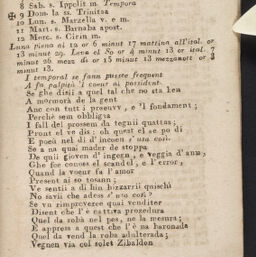 8 Sab. s. Ippolit m. Tempora
✠ 9 Dom. la ss. Trinitaa
10 Lun. s. Marzella v. e m.
11 Mart. s. Barnaba apost.
12 Merc. s. Cirin m.
Luna piena ai 12 or 6 minut 17 mattina all'ital. or
13 minut 29. Leva el So or 4 minut 13 or ital. 7
minut 26 mezz dì or 15 minut 13 mezzanott or 3
minut 13.
I temporal se fann puesee frequent
A fa palpità 'l coeur ai possident.
Se ghe disii a quel tal che no sta ben
A mormorà de la gent
Anc con tutt i proeuvv, e 'l fondament;
Perchè sem obbligaa
I fall del prossem da tegnii quattaa;
Pront el ve dis: oh quest el se po dì
E poeù nel dì d' incoeu s' usa così.
Se a na quai mader de stoppa
De quii gioven d' ingegn, e veggia d' ann,
Ghe foo conoss el scandol, e l' error,
Quand la voeur fa l' amor
Present ai so tosann;
Ve sentii a dì hin bizzarrii quischì
No savii che adess s' usa così?
Se vu rimproveree quai venditer
Disent che l' è cattiva procedura
Quel da robà nel pes, ne la mesura;
E appress a quest che l' è na baronada
Quel da vend la roba adulterada;
Vegnen via col solet Zibaldon